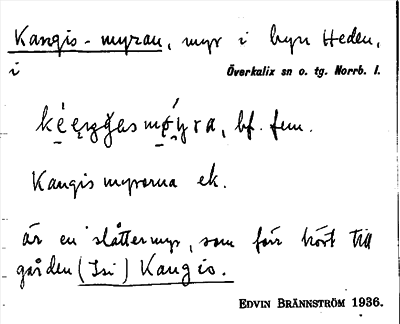 Kangis-myran, myr i byn Heden,
i Överkalix sn o. tg. Norrb. l.
bf. fem.
Kangismyrarna ek.
är en slåttermyr, som förr hört till
gården (Isi) Kangis.
EDVIN BRÄNNSTRÖM 1936.